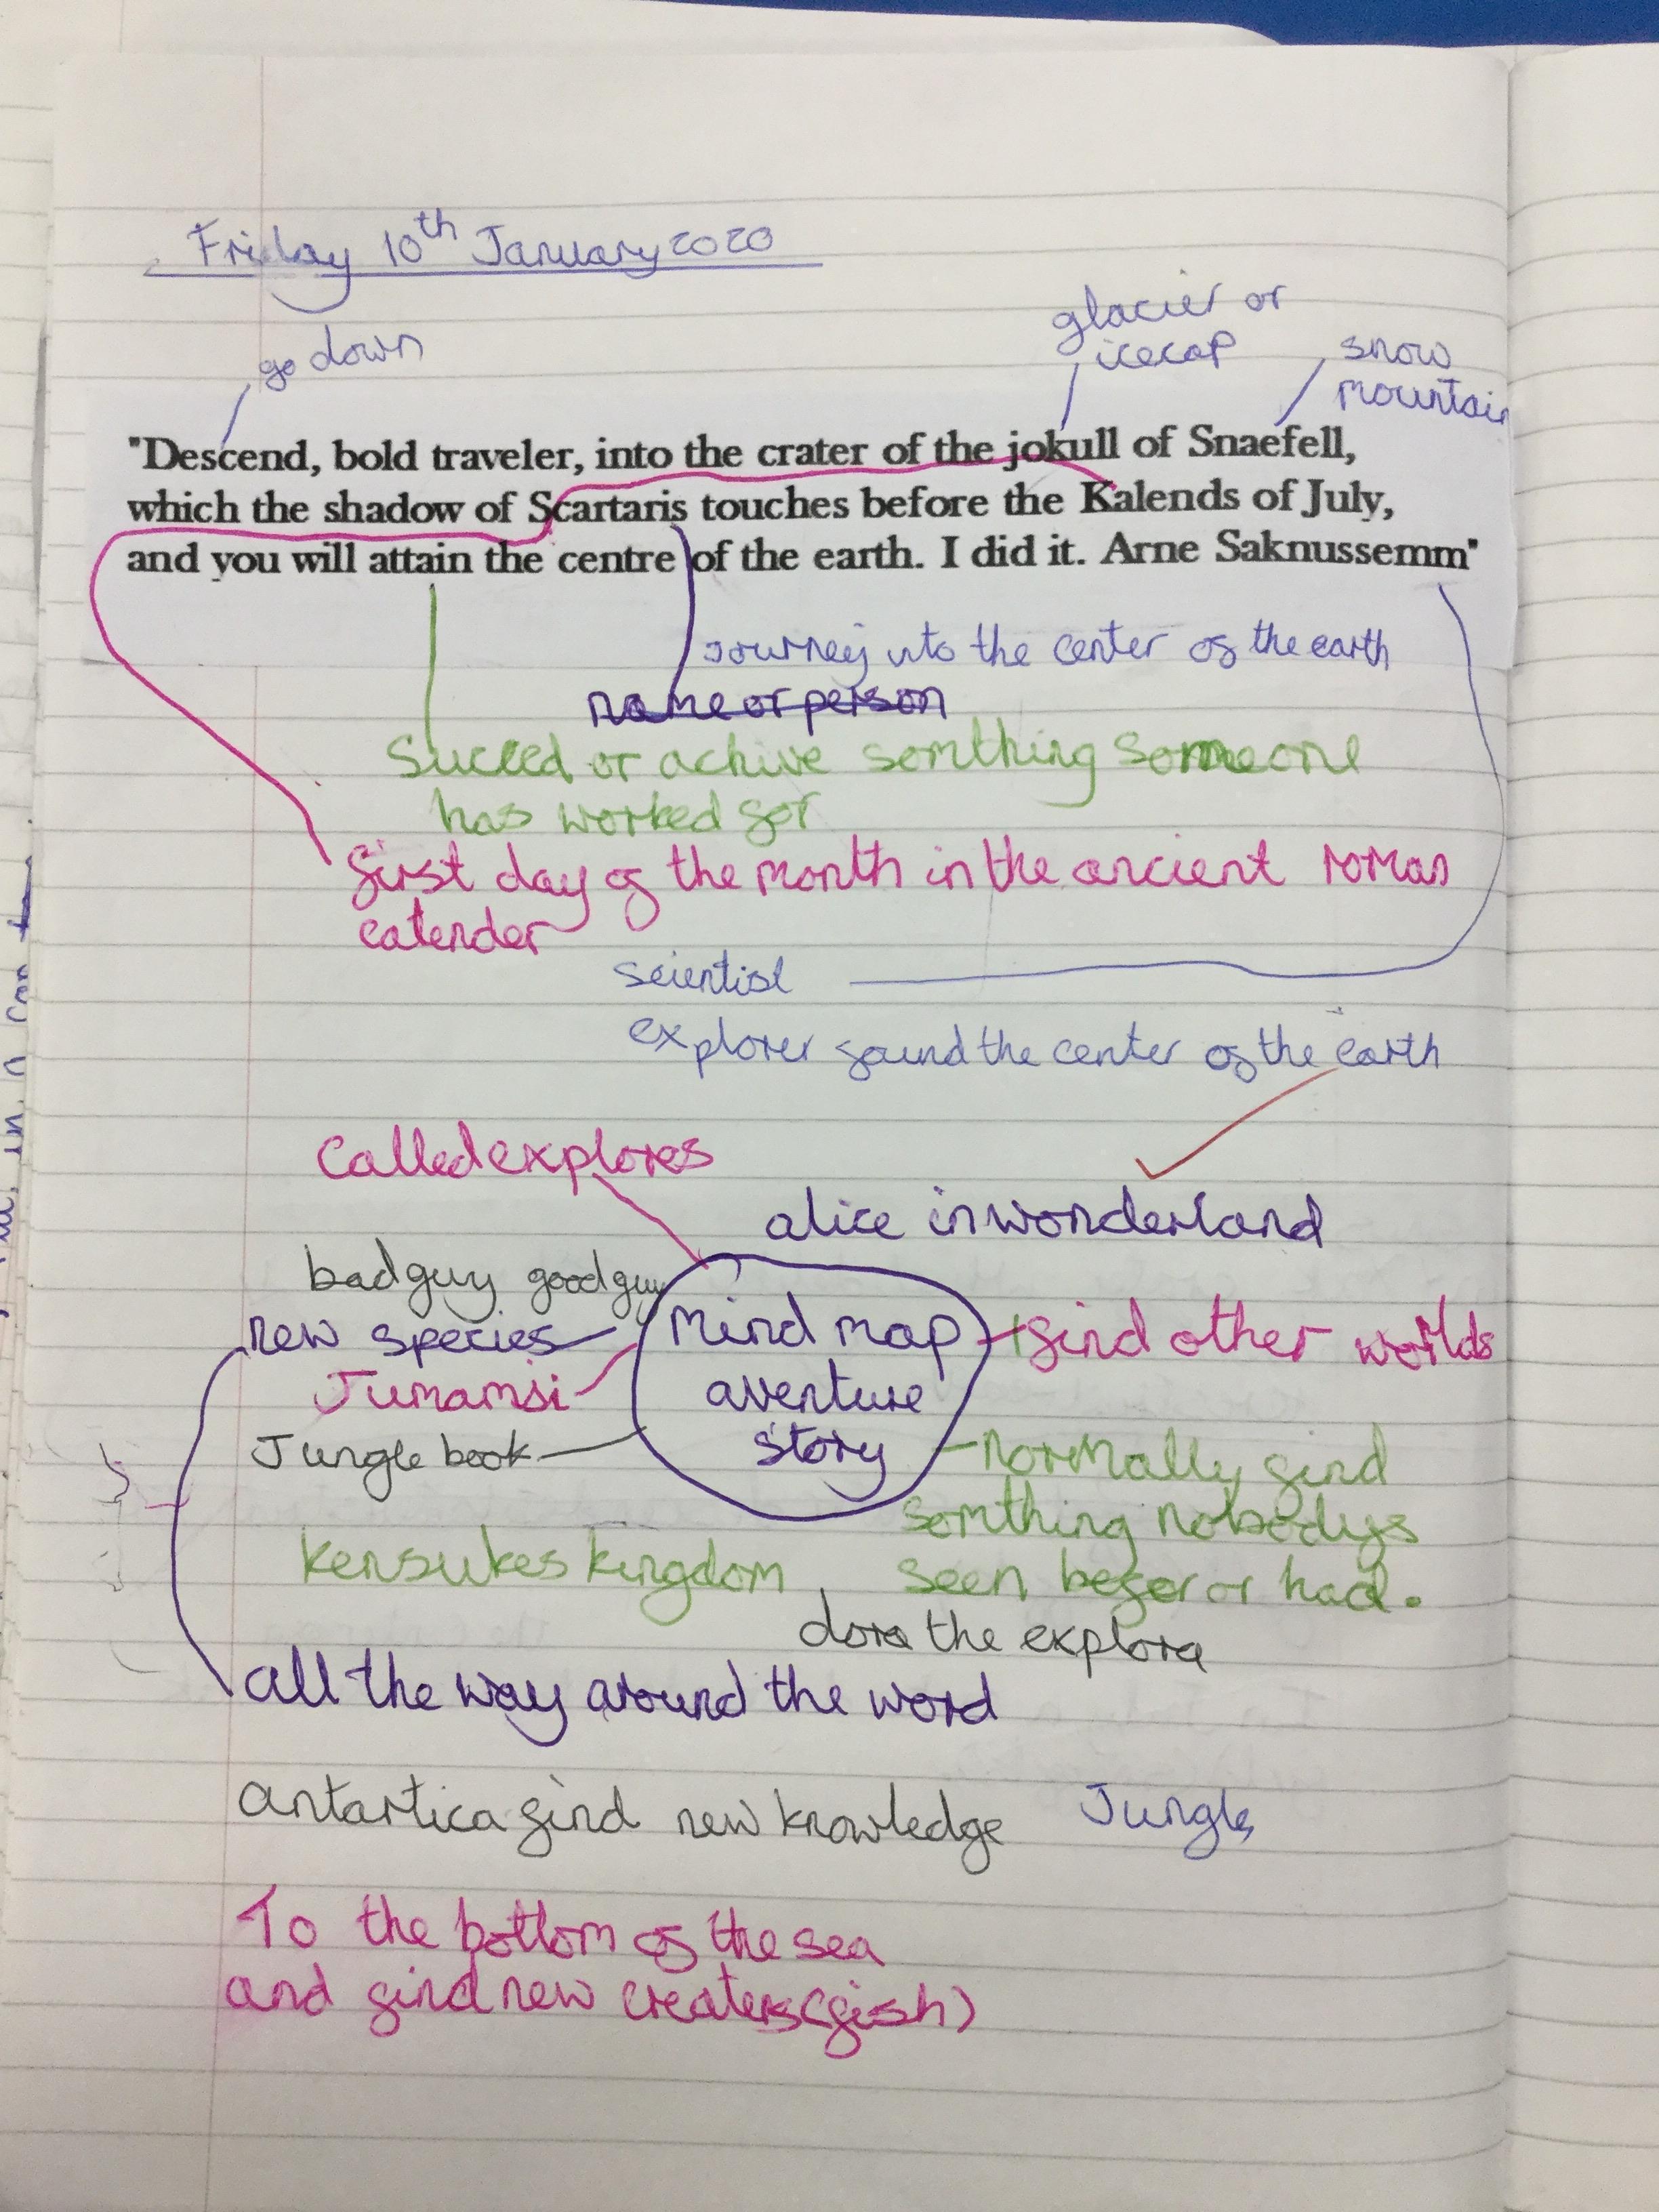 Friday 10th January 2020
go down
glacier or
icecap
snow
mountain
"Descend, bold traveler, into the crater of the jokull of Snaefell,
which the shadow of Scartaris touches before the Kalends of July,
and you will attain the centre of the earth. I did it. Arne Saknussemm"
Journey into the center of the earth
name or person
Succed or achive somthing someone
has worked for
first day of the month in the ancient roman
calender
scientist
explorer found the center of the earth
Called explores
alice in wonderland
bad guy good guy
new species
Mind map
aventure
story
find other worlds
Jumamsi
Jungle book
normally find
somthing nobodys
seen befor or had.
Kensukes kingdom
dora the explora
all the way around the word
antartica find new knowledge
Jungle
To the bottom of the sea
and find new creaters (fish)